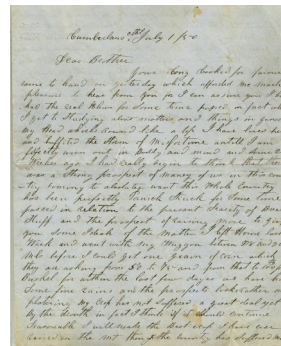 Cumberland July 1/50
Dear Brother
Your long looked for favour
came to hand on yesterday which afforded me much
pleasure to hear from you for I can assure you I
had the real for some time past in fact when
I get to studying about matters and things in general
my head whirls around like a I have
and buffeted the storm of misfortune until I am
out in body and mind and some
weeks ago I had really begin to think that there
was a strong prospect of many of us in this coun
try coming to absolutely want this whole country
has been perfectly Panick Struck for some time
passed in relation to the present scarcity of Bread
Stuff and the prospect of raising more to give
you some idea of the matter I left Home last
Week and went with my Waggon between 40 and 50
Mls before I could get one grain of corn which
they are asking from 50 to and from that to
Bushel for within the last few days we have had
some fine rains and the prospects looks rather
my crop has not suffered a great deal yet
by the drouth in fact I think if it should continue
seasonable I will make the best crop I have ever
raised on the the country has suffered